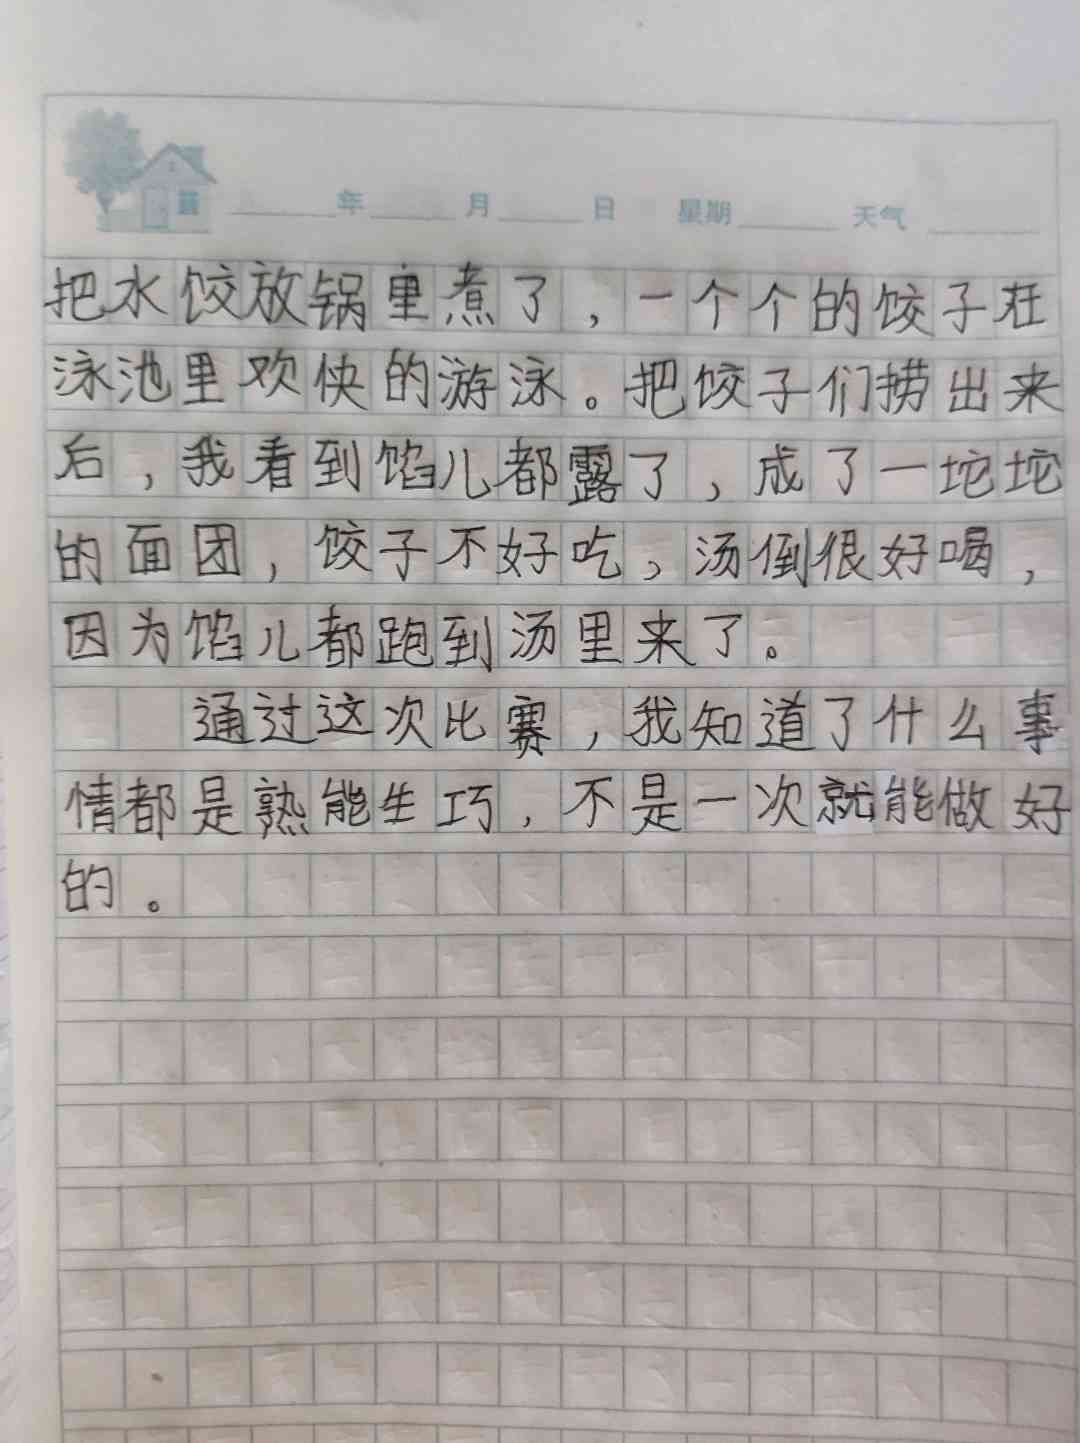 年 月 日 星期 天气
把水饺放锅里煮了，一个个的饺子在
泳池里欢快的游泳。把饺子们捞出来
后，我看到馅儿都露了，成了一坨坨
的面团，饺子不好吃，汤倒很好喝，
因为馅儿都跑到汤里来了。
通过这次比赛，我知道了什么事
情都是熟能生巧，不是一次就能做好
的。